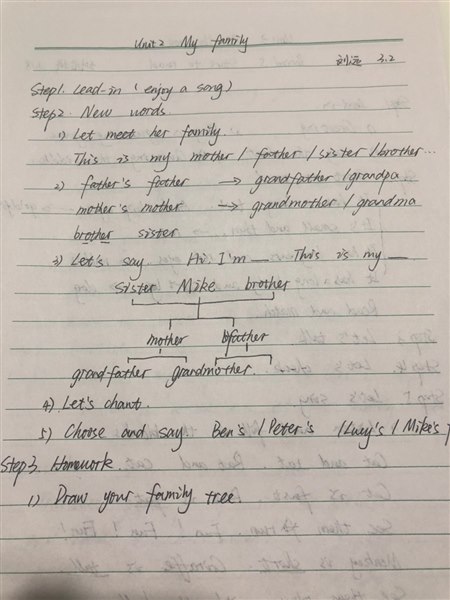 Unit 2 My family
刘远 3.2
Step1. Lead-in (enjoy a song)
Step2. New words.
1) Let meet her family.
This is my mother / father / sister / brother...
2) father's father → grandfather / grandpa
mother's mother → grandmother / grandma
brother sister
3) Let's say. Hi. I'm __ This is my __
Sister Mike brother
mother father
grandfather grandmother.
4) Let's chant.
5) Choose and say. Ben's / Peter's / Lucy's / Mike's
Step3. Homework.
1) Draw your family tree.